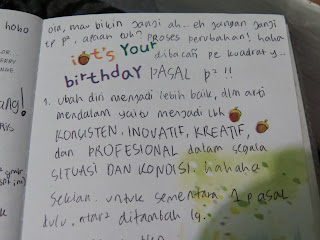 oia, mau bikin janji ah.. eh jangan janji
tp p², apaan tuh? PROSES perubahan! haha
it's Your
dibacañ pe kuadrat y..
birthday PASAL p² !!
1. Ubah diri menjadi lebih baik, dlm arti
mendalam yaitu menjadi lbh
KONSISTEN, INOVATIF, KREATIF,
dan PROFESIONAL dalam segala
SITUASI DAN KONDISI. hahaha
Sekian.. untuk sementara 1 pasal
dulu. ntar² ditambah lg..
hoho